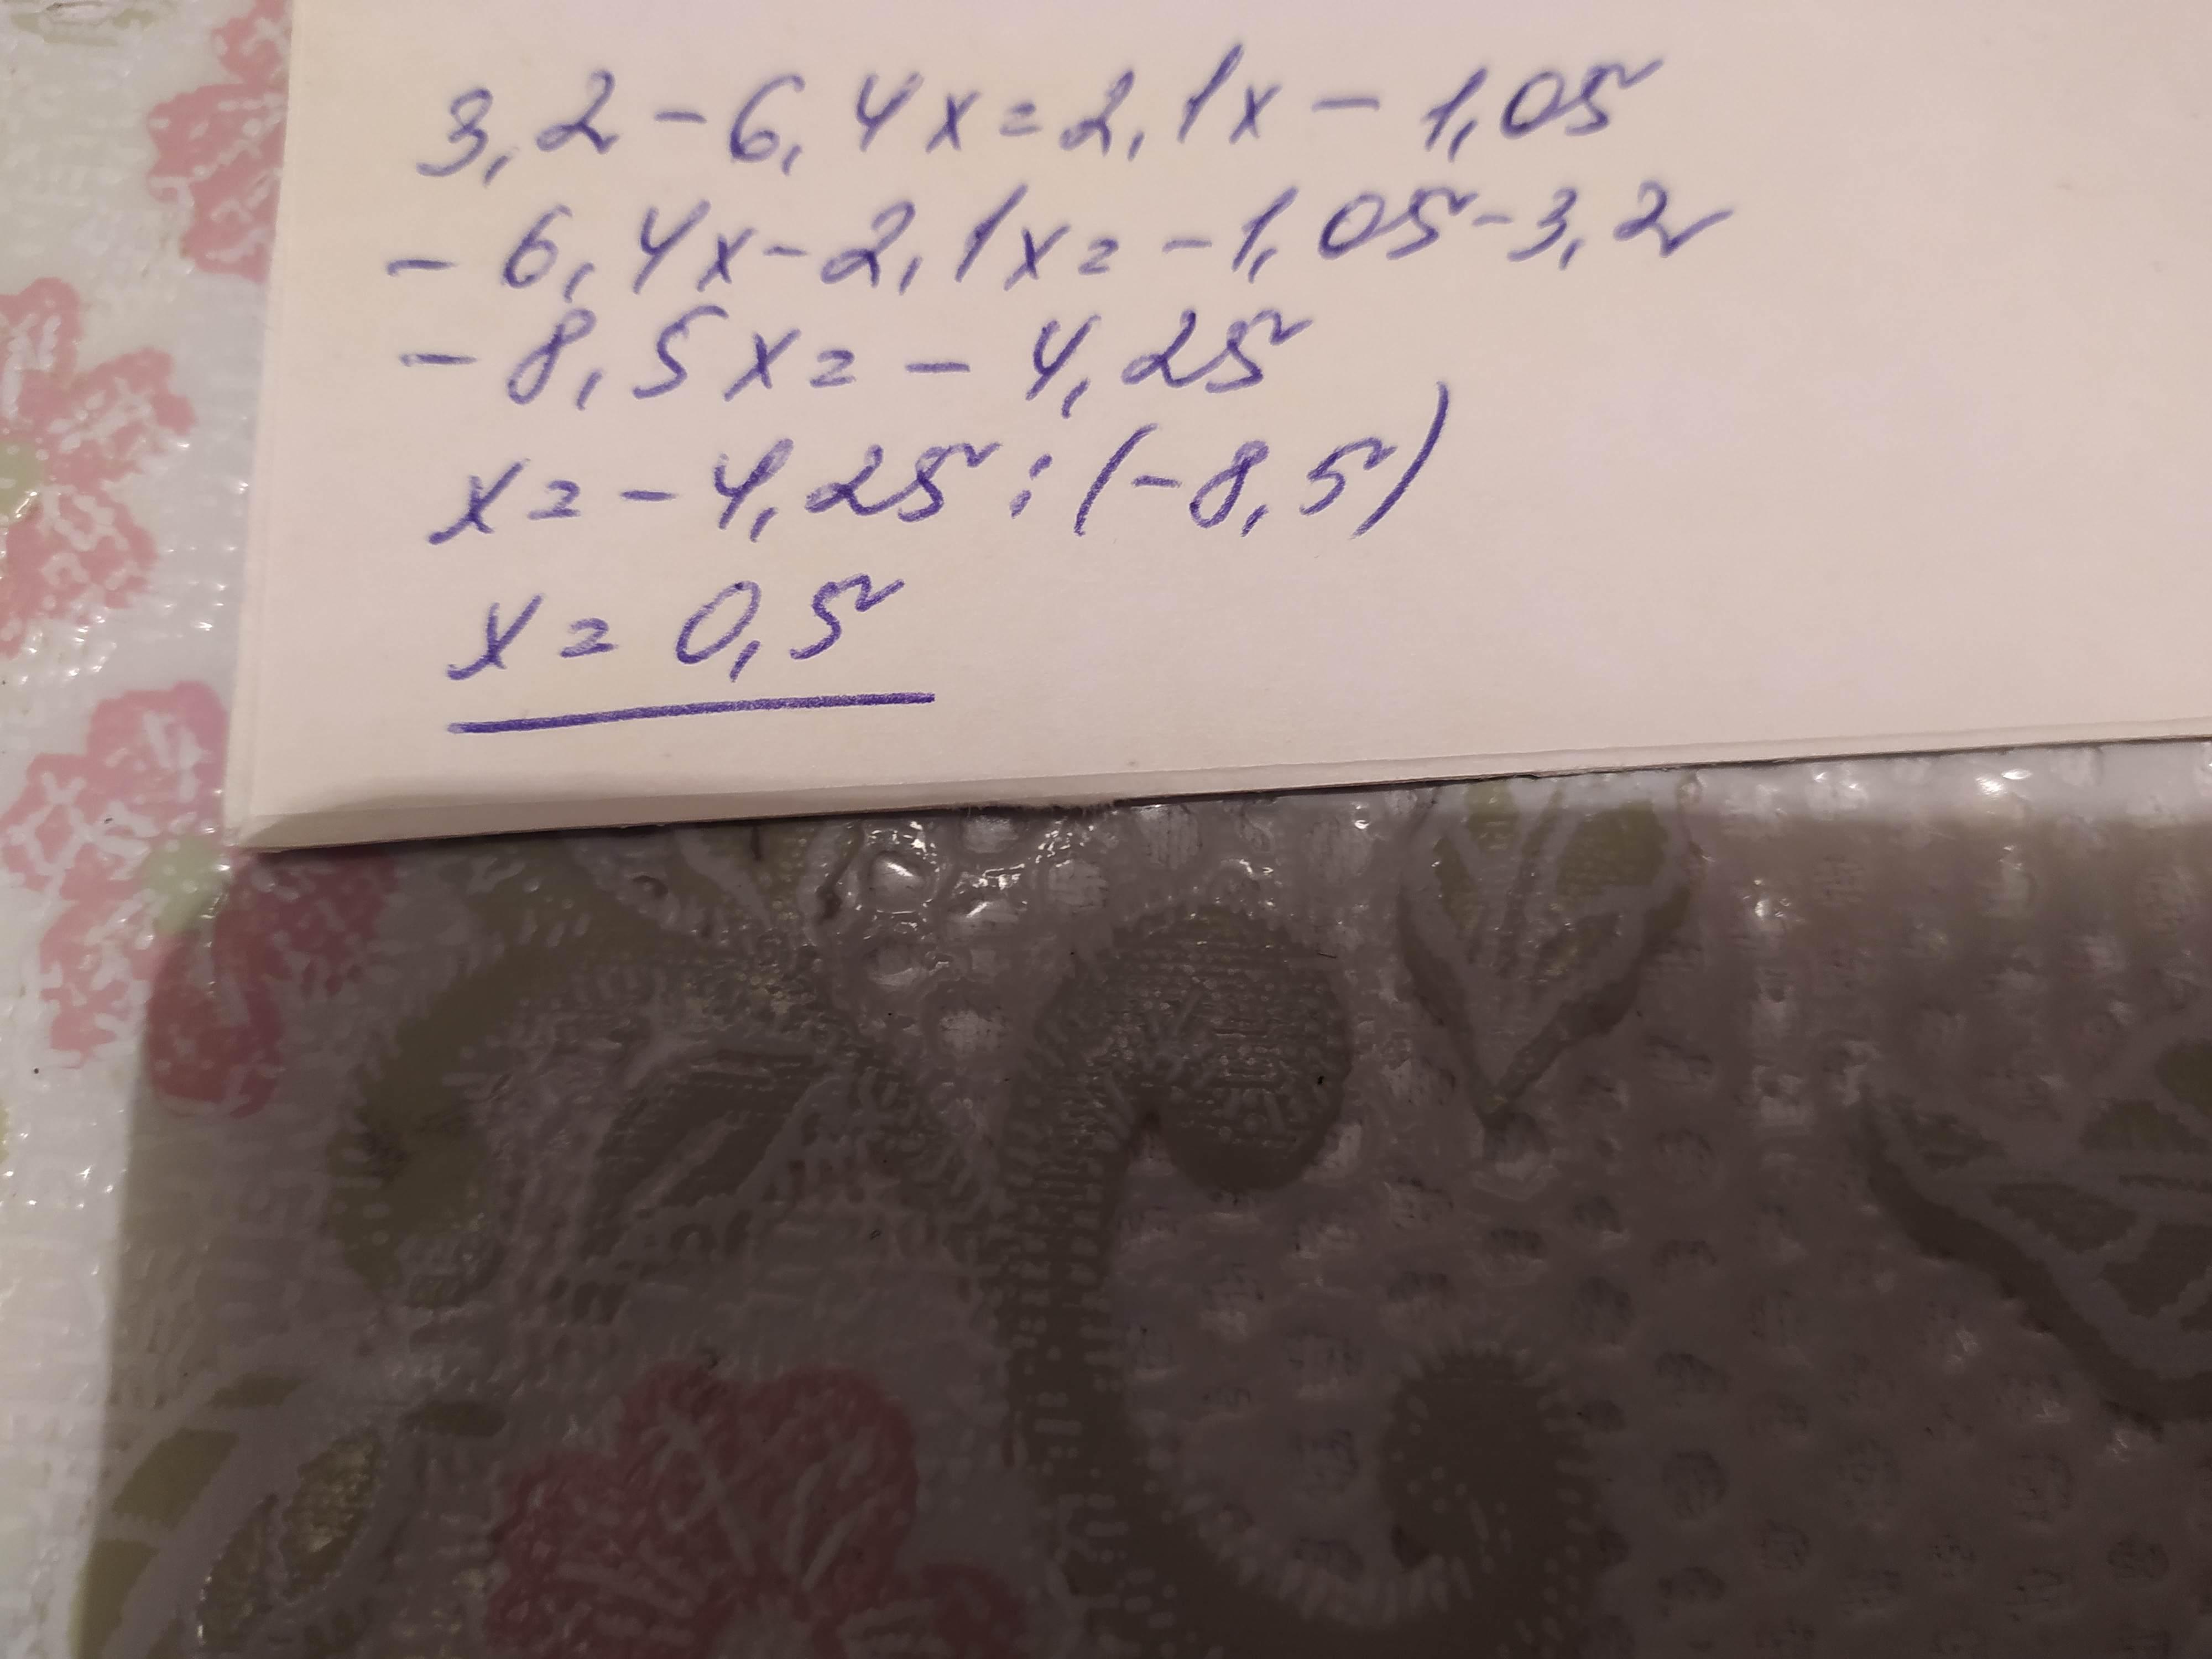 3,2 - 6,4x = 2,1x - 1,05
- 6,4x - 2,1x = - 1,05 - 3,2
- 8,5x = - 4,25
x = - 4,25 : (-8,5)
x = 0,5